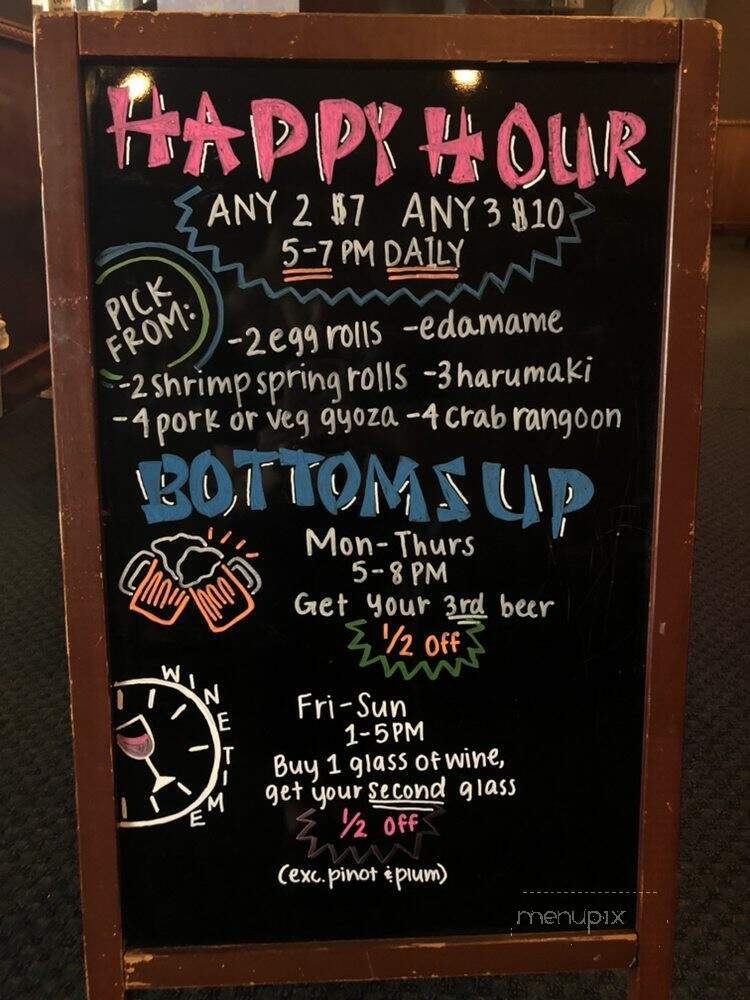 HAPPY HOUR
ANY 2 $7 ANY 3 $10
5-7 PM DAILY
PICK
FROM:
-2 egg rolls -edamame
-2 shrimp spring rolls -3 harumaki
-4 pork or veg gyoza -4 crab rangoon
BOTTOMS UP
Mon-Thurs
5-8 PM
Get your 3rd beer
1/2 off
WINE TIME
Fri-Sun
1-5PM
Buy 1 glass of wine,
get your second glass
1/2 off
(exc. pinot & plum)
menupix